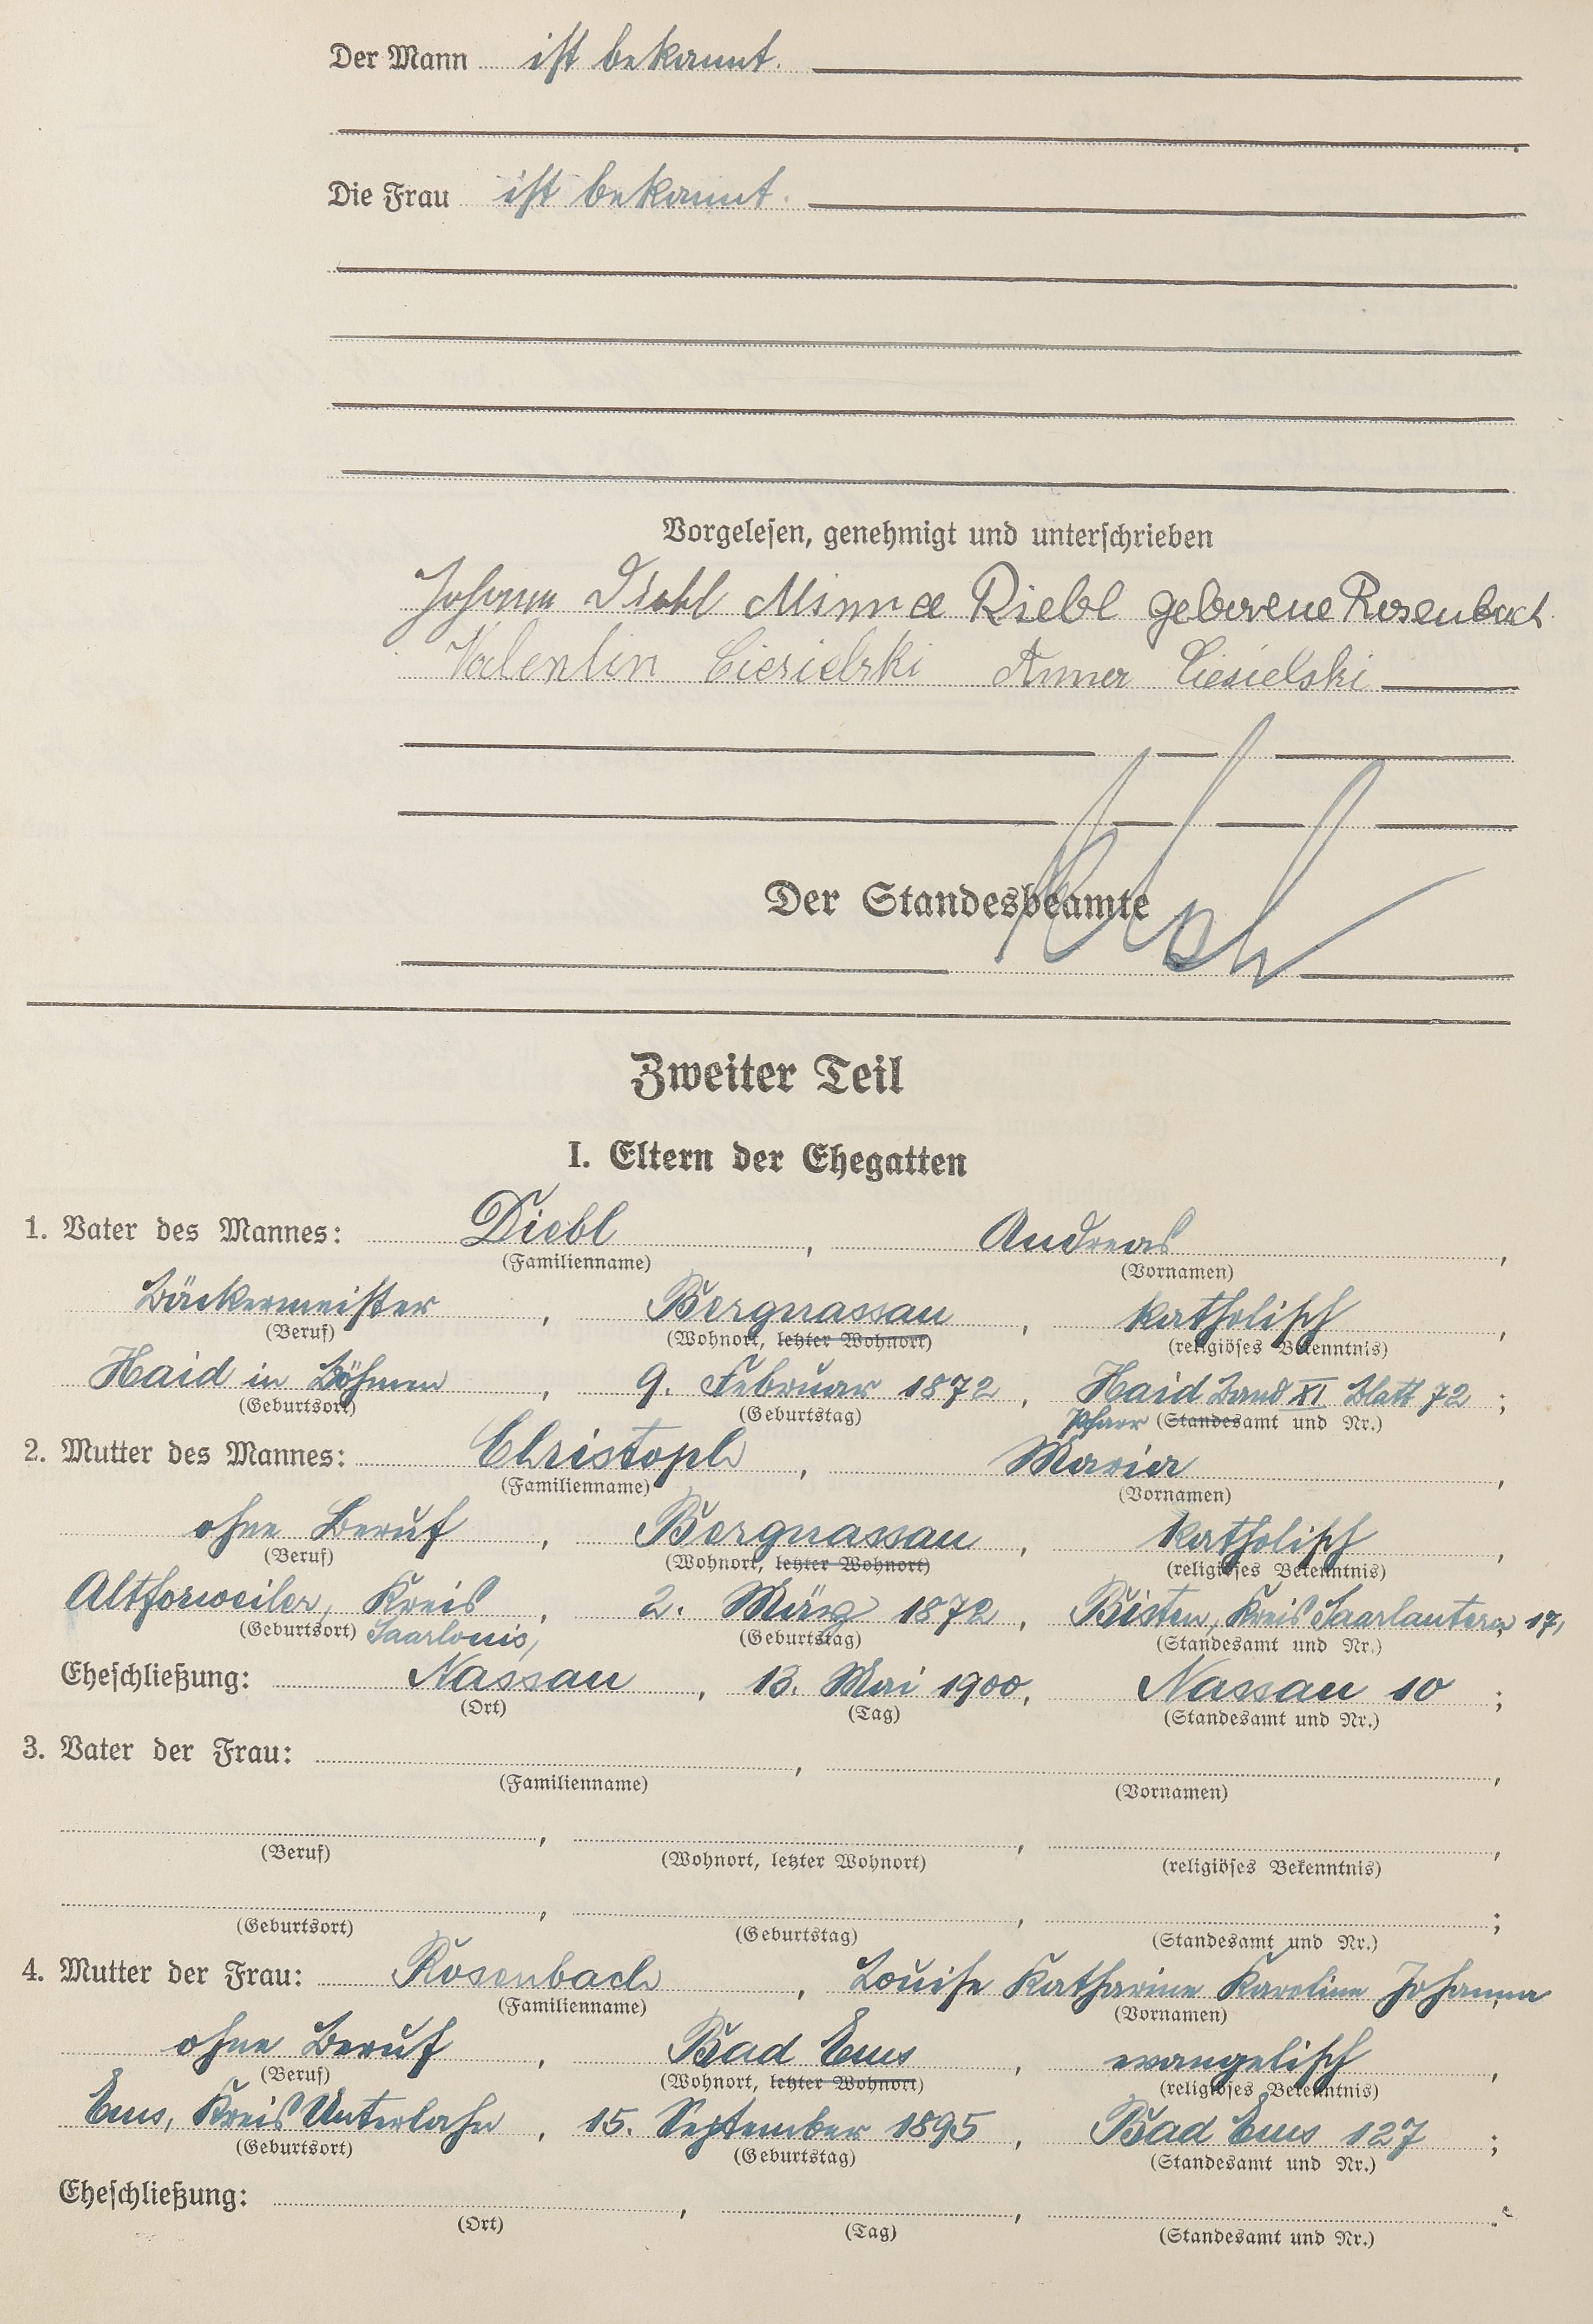 Der Mann ist bekannt.
Die Frau ist bekannt.
Vorgelesen, genehmigt und unterschrieben
Johann Diebl Minna Diebl geborene Rosenbach
Valentin Ciesielski Anna Ciesielski
Der Standesbeamte
Zweiter Teil
I. Eltern der Ehegatten
1. Vater des Mannes: Diebl, Andreas,
(Familienname) (Vornamen)
Bäckermeister, Bergnassau, katholisch,
(Beruf) (Wohnort, letzter Wohnort) (religiöses Bekenntnis)
Haid in Böhmen, 9. Februar 1872, Haid Band XI Blatt 72;
(Geburtsort) (Geburtstag) Pfarr (Standesamt und Nr.)
2. Mutter des Mannes: Christoph, Maria,
(Familienname) (Vornamen)
ohne Beruf, Bergnassau, katholisch,
(Beruf) (Wohnort, letzter Wohnort) (religiöses Bekenntnis)
Altforweiler, Kreis, 2. März 1872, Bisten, Kreis Saarlautern 17,
(Geburtsort) Saarlouis, (Geburtstag) (Standesamt und Nr.)
Eheschließung: Nassau, 13. Mai 1900, Nassau 10;
(Ort) (Tag) (Standesamt und Nr.)
3. Vater der Frau: , ,
(Familienname) (Vornamen)
(Beruf) (Wohnort, letzter Wohnort) (religiöses Bekenntnis)
(Geburtsort) (Geburtstag) (Standesamt und Nr.)
4. Mutter der Frau: Rosenbach, Louise Katharine Karoline Johanna
(Familienname) (Vornamen)
ohne Beruf, Bad Ems, evangelisch,
(Beruf) (Wohnort, letzter Wohnort) (religiöses Bekenntnis)
Ems, Kreis Unterlahn, 15. September 1895, Bad Ems 127;
(Geburtsort) (Geburtstag) (Standesamt und Nr.)
Eheschließung: , , .
(Ort) (Tag) (Standesamt und Nr.)